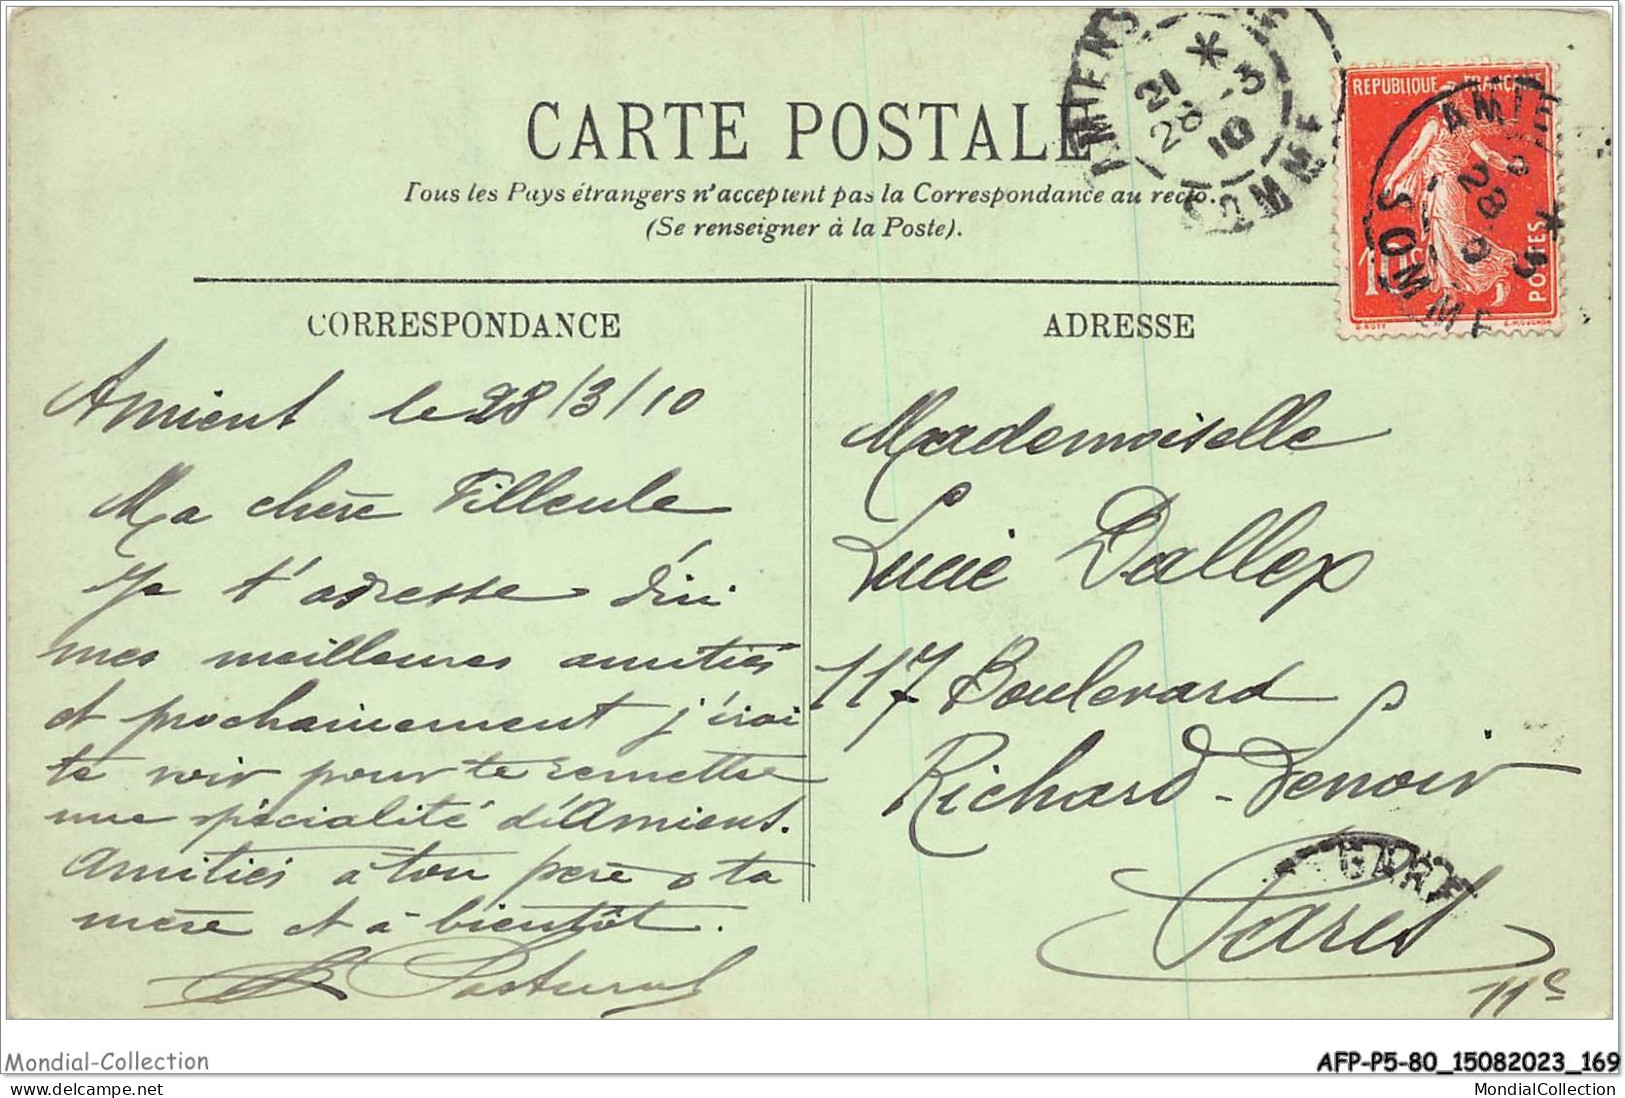 AMIENS
21 * 28 -3 10
SOMME
REPUBLIQUE FRANÇAISE
10c
POSTES
O.ROTY E.MOUCHON
28
SOMME
CARTE POSTALE
Tous les Pays étrangers n'acceptent pas la Correspondance au recto.
(Se renseigner à la Poste).
CORRESPONDANCE
Amiens le 28/3/10
Ma chère Filleule
Je t'adresse d'ici
mes meilleures amitiés
et prochainement j'irai
te voir pour te remettre
une spécialité d'Amiens.
Amitiés à ton père & ta
mère et à bientôt.
ADRESSE
Mademoiselle
Lucie Dallex
117 Boulevard
Richard-Lenoir
Paris
11e
GARE
Mondial-Collection
AFP-P5-80_15082023_169
https://www.delcampe.net
MondialCollection